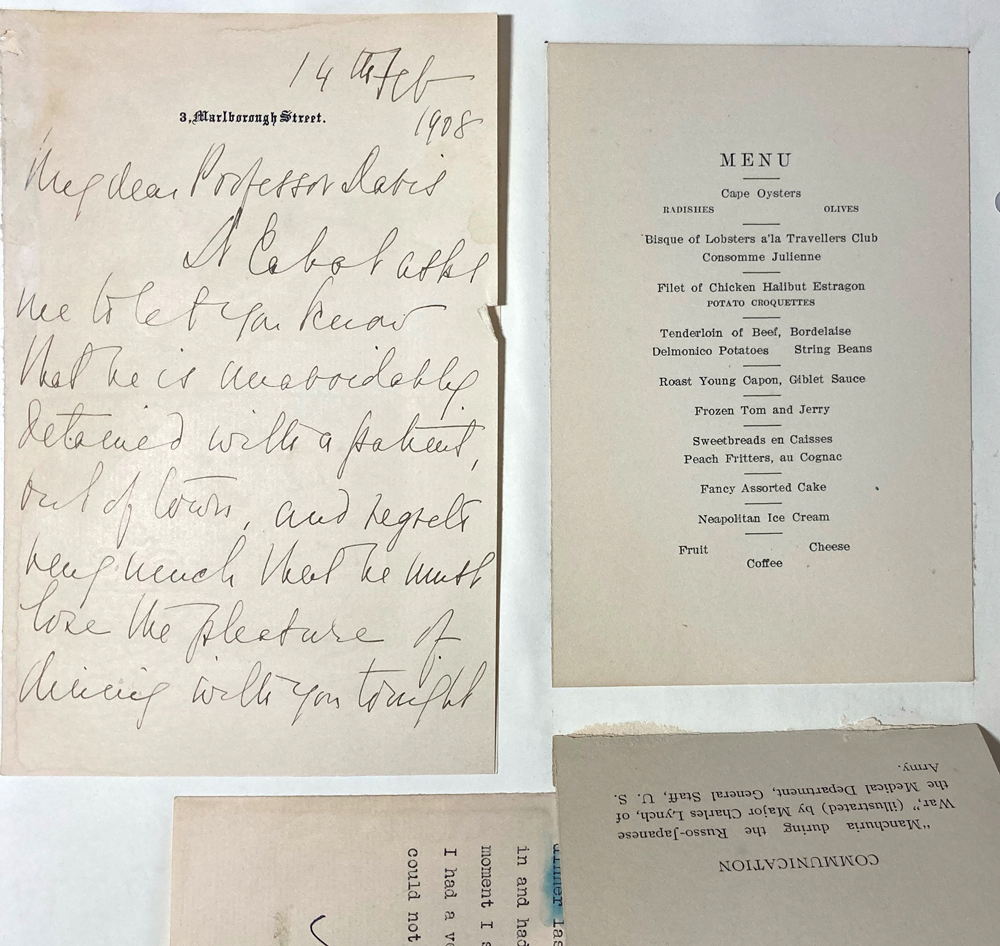 14th Feb
3, Marlborough Street.
1908
My dear Professor Davis
Dr Cabot asks
me to let you know
that he is unavoidably
detained with a patient,
out of town, and regrets
very much that he must
lose the pleasure of
dining with you tonight
MENU
Cape Oysters
RADISHES OLIVES
Bisque of Lobsters a'la Travellers Club
Consomme Julienne
Filet of Chicken Halibut Estragon
POTATO CROQUETTES
Tenderloin of Beef, Bordelaise
Delmonico Potatoes String Beans
Roast Young Capon, Giblet Sauce
Frozen Tom and Jerry
Sweetbreads en Caisses
Peach Fritters, au Cognac
Fancy Assorted Cake
Neapolitan Ice Cream
Fruit Cheese
Coffee
COMMUNICATION
"Manchuria during the Russo-Japanese
War," (illustrated) by Major Charles Lynch, of
the Medical Department, General Staff, U. S.
Army.
dinner las
in and had
moment I s
I had a ve
could not